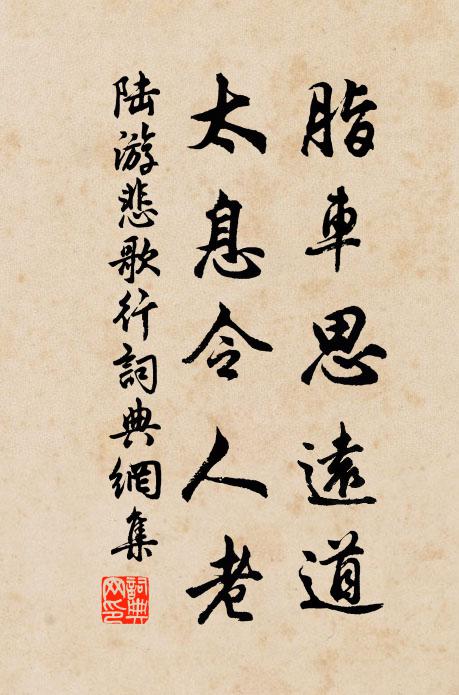 脂車思遠道
太息令人老
陸游悲歌行詞典網集
詞典網印